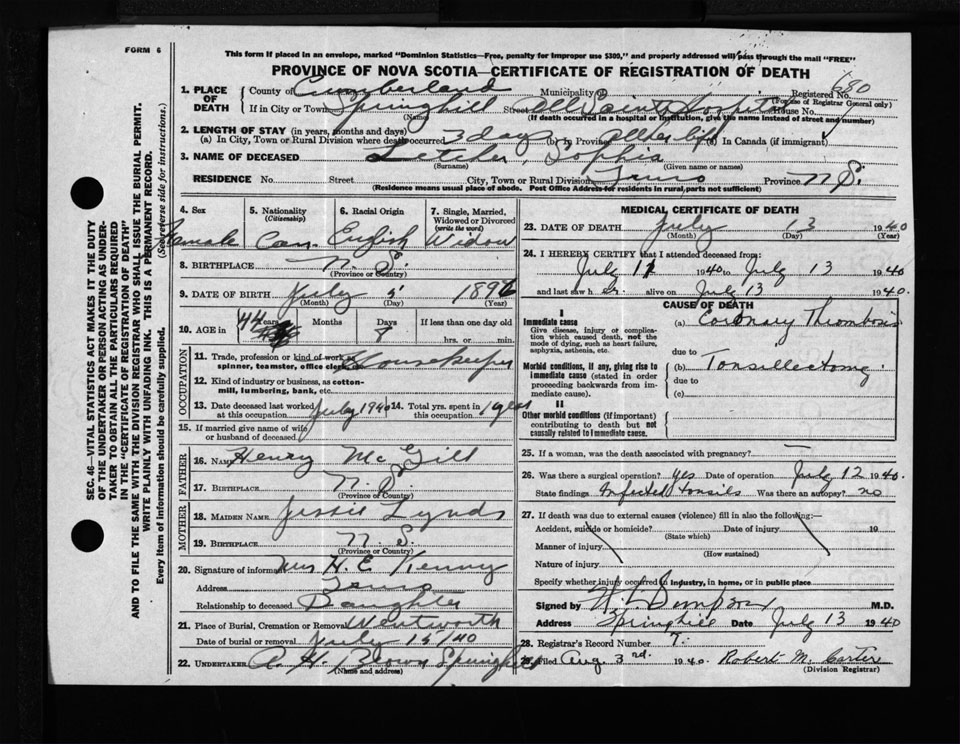 FORM 6
This form if placed in an envelope, marked "Dominion Statistics—Free, penalty for improper use $300," and properly addressed will pass through the mail "FREE"
PROVINCE OF NOVA SCOTIA—CERTIFICATE OF REGISTRATION OF DEATH
1. PLACE OF DEATH County of Cumberland Municipality Registered No. 680
(For use of Registrar General only)
If in City or Town Springhill Street All Saints Hospital House No.
(Name) (If death occurred in a hospital or institution, give the name instead of street and number)
2. LENGTH OF STAY (in years, months and days)
(a) In City, Town or Rural Division where death occurred 3 days (b) in Province all her life (c) In Canada (if immigrant)
3. NAME OF DECEASED Letcher, Sophia
(Surname) (Given name or names)
RESIDENCE No. Street City, Town or Rural Division Truro Province N.S.
(Residence means usual place of abode. Post Office Address for residents in rural parts not sufficient)
4. Sex 5. Nationality (Citizenship) 6. Racial Origin 7. Single, Married, Widowed or Divorced (write the word)
Female Can. English Widow
8. BIRTHPLACE N. S.
(Province or Country)
9. DATE OF BIRTH July 5 1896
(Month) (Day) (Year)
10. AGE in 44 Years Months Days 8 If less than one day old
hrs. or min.
OCCUPATION
11. Trade, profession or kind of work as spinner, teamster, office clerk Housekeeper
12. Kind of industry or business, as cotton-mill, lumbering, bank, etc.
13. Date deceased last worked at this occupation July 1940 14. Total yrs. spent in this occupation
15. If married give name of wife or husband of deceased
FATHER
16. Name Henry McGill
17. Birthplace N. S.
(Province or Country)
MOTHER
18. MAIDEN NAME Jessie Lynds
19. BIRTHPLACE N. S.
(Province or Country)
20. Signature of informant Mrs H. E. Kenny
Address Truro
Relationship to deceased Daughter
21. Place of Burial, Cremation or Removal Wentworth
Date of burial or removal July 15/40
22. UNDERTAKER A. H. Brown Springhill
(Name and address)
MEDICAL CERTIFICATE OF DEATH
23. DATE OF DEATH July 13 1940
(Month) (Day) (Year)
24. I HEREBY CERTIFY that I attended deceased from
July 11 1940 to July 13 1940
and last saw her alive on July 13 1940.
CAUSE OF DEATH
I
Immediate cause (a) Coronary Thrombosis
Give disease, injury or complication which caused death, not the mode of dying, such as heart failure, asphyxia, asthenia, etc.
due to
Morbid conditions, if any, giving rise to immediate cause (stated in order proceeding backwards from immediate cause).
(b) Tonsillectomy
due to
(c)
II
Other morbid conditions (if important) contributing to death but not causally related to immediate cause.
25. If a woman, was the death associated with pregnancy?
26. Was there a surgical operation? yes Date of operation July 12 1940.
State findings Infected tonsils Was there an autopsy? no
27. If death was due to external causes (violence) fill in also the following:—
Accident, suicide or homicide? Date of injury 19
(State which)
Manner of injury
(How sustained)
Nature of injury
Specify whether injury occurred in industry, in home, or in public place
Signed by M.D.
Address Springhill Date July 13 1940
28. Registrar's Record Number 7.
29. Filed Aug. 3rd. 1940. Robert M. Carter
(Division Registrar)
SEC. 46—VITAL STATISTICS ACT MAKES IT THE DUTY
OF THE UNDERTAKER OR PERSON ACTING AS UNDER-
TAKER TO OBTAIN ALL THE PARTICULARS REQUIRED
IN THE "CERTIFICATE OF REGISTRATION OF DEATH"
AND TO FILE THE SAME WITH THE DIVISION REGISTRAR WHO SHALL ISSUE THE BURIAL PERMIT.
WRITE PLAINLY WITH UNFADING INK. THIS IS A PERMANENT RECORD.
Every item of information should be carefully supplied. (See reverse side for instructions.)